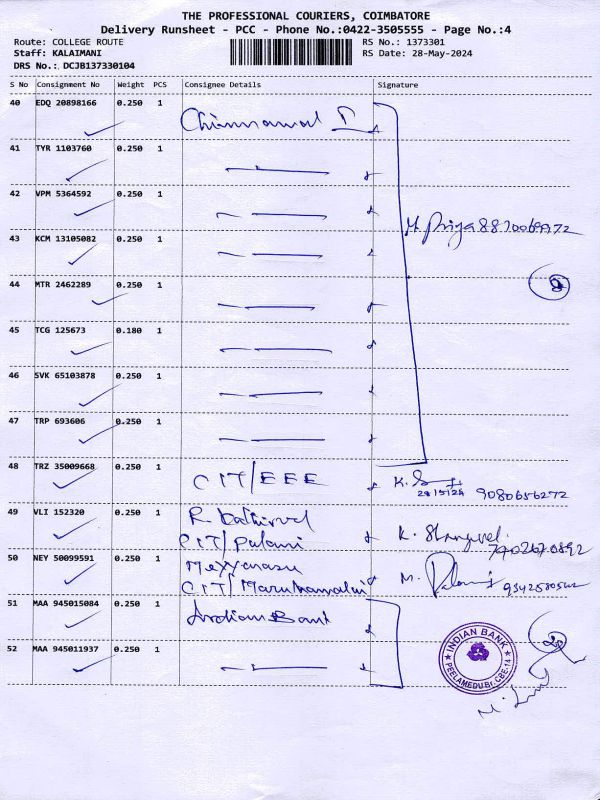 THE PROFESSIONAL COURIERS, COIMBATORE
Delivery Runsheet - PCC - Phone No.:0422-3505555 - Page No.:4
Route: COLLEGE ROUTE RS No.: 1373301
Staff: KALAIMANI RS Date: 28-May-2024
DRS No.: DCJB137330104
S No Consignment No Weight PCS Consignee Details Signature
40 EDQ 20898166 0.250 1
41 TYR 1103760 0.250 1
42 VPM 5364592 0.250 1
M. Priya
43 KCM 13105082 0.250 1
44 MTR 2462289 0.250 1
45 TCG 125673 0.180 1
46 SVK 65103878 0.250 1
47 TRP 693606 0.250 1
48 TRZ 35009668 0.250 1 CIT/EEE K.
9080656272
49 VLI 152320 0.250 1 R. Kathirvel
CIT/Palani
50 NEY 50099591 0.250 1 Meyyarasu
CIT/ M.
51 MAA 945015084 0.250 1 Indian Bank
52 MAA 945011937 0.250 1
INDIAN BANK
PEELAMEDU Br. CBE-14